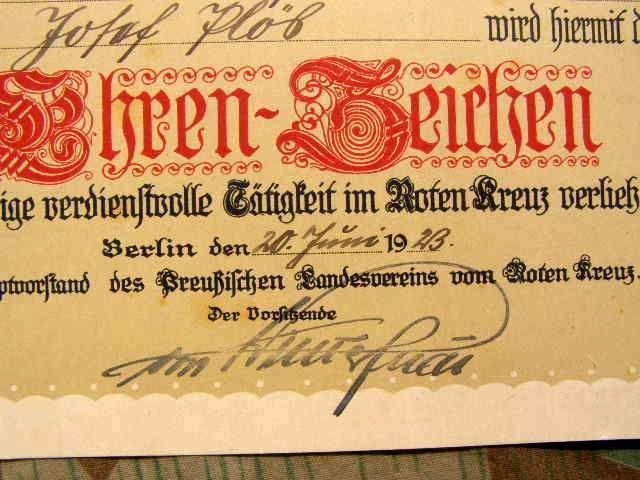 Josef Plöß wird hiermit d
Ehren-Zeichen
ige verdienstvolle Tätigkeit im Roten Kreuz verlieh
Berlin den 20. Juni 1923.
ptvorstand des Preußischen Landesvereins vom Roten Kreuz.
Der Vorsitzende